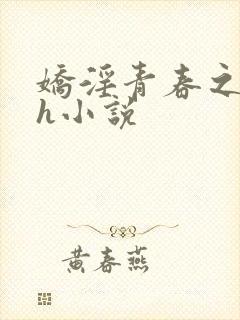 嬌淫青春之
h小說
黄春燕